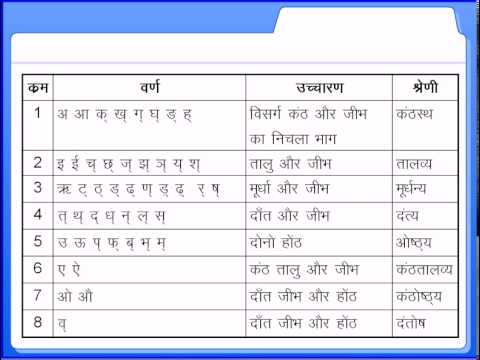 क्रम वर्ण उच्चारण श्रेणी
1 अ आ क् ख् ग् घ् ङ् ह् विसर्ग कंठ और जीभ कंठस्थ
का निचला भाग
2 इ ई च् छ् ज् झ् ञ् य् श् तालु और जीभ तालव्य
3 ऋ ट् ठ् ड् ढ् ण् ड़् ढ़् र् ष् मूर्धा और जीभ मूर्धन्य
4 त् थ् द् ध् न् ल् स् दाँत और जीभ दंत्य
5 उ ऊ प् फ् ब् भ् म् दोनो होंठ ओष्ठ्य
6 ए ऐ कंठ तालु और जीभ कंठतालव्य
7 ओ औ दाँत जीभ और होंठ कंठोष्ठ्य
8 व् दाँत जीभ और होंठ दंतोष